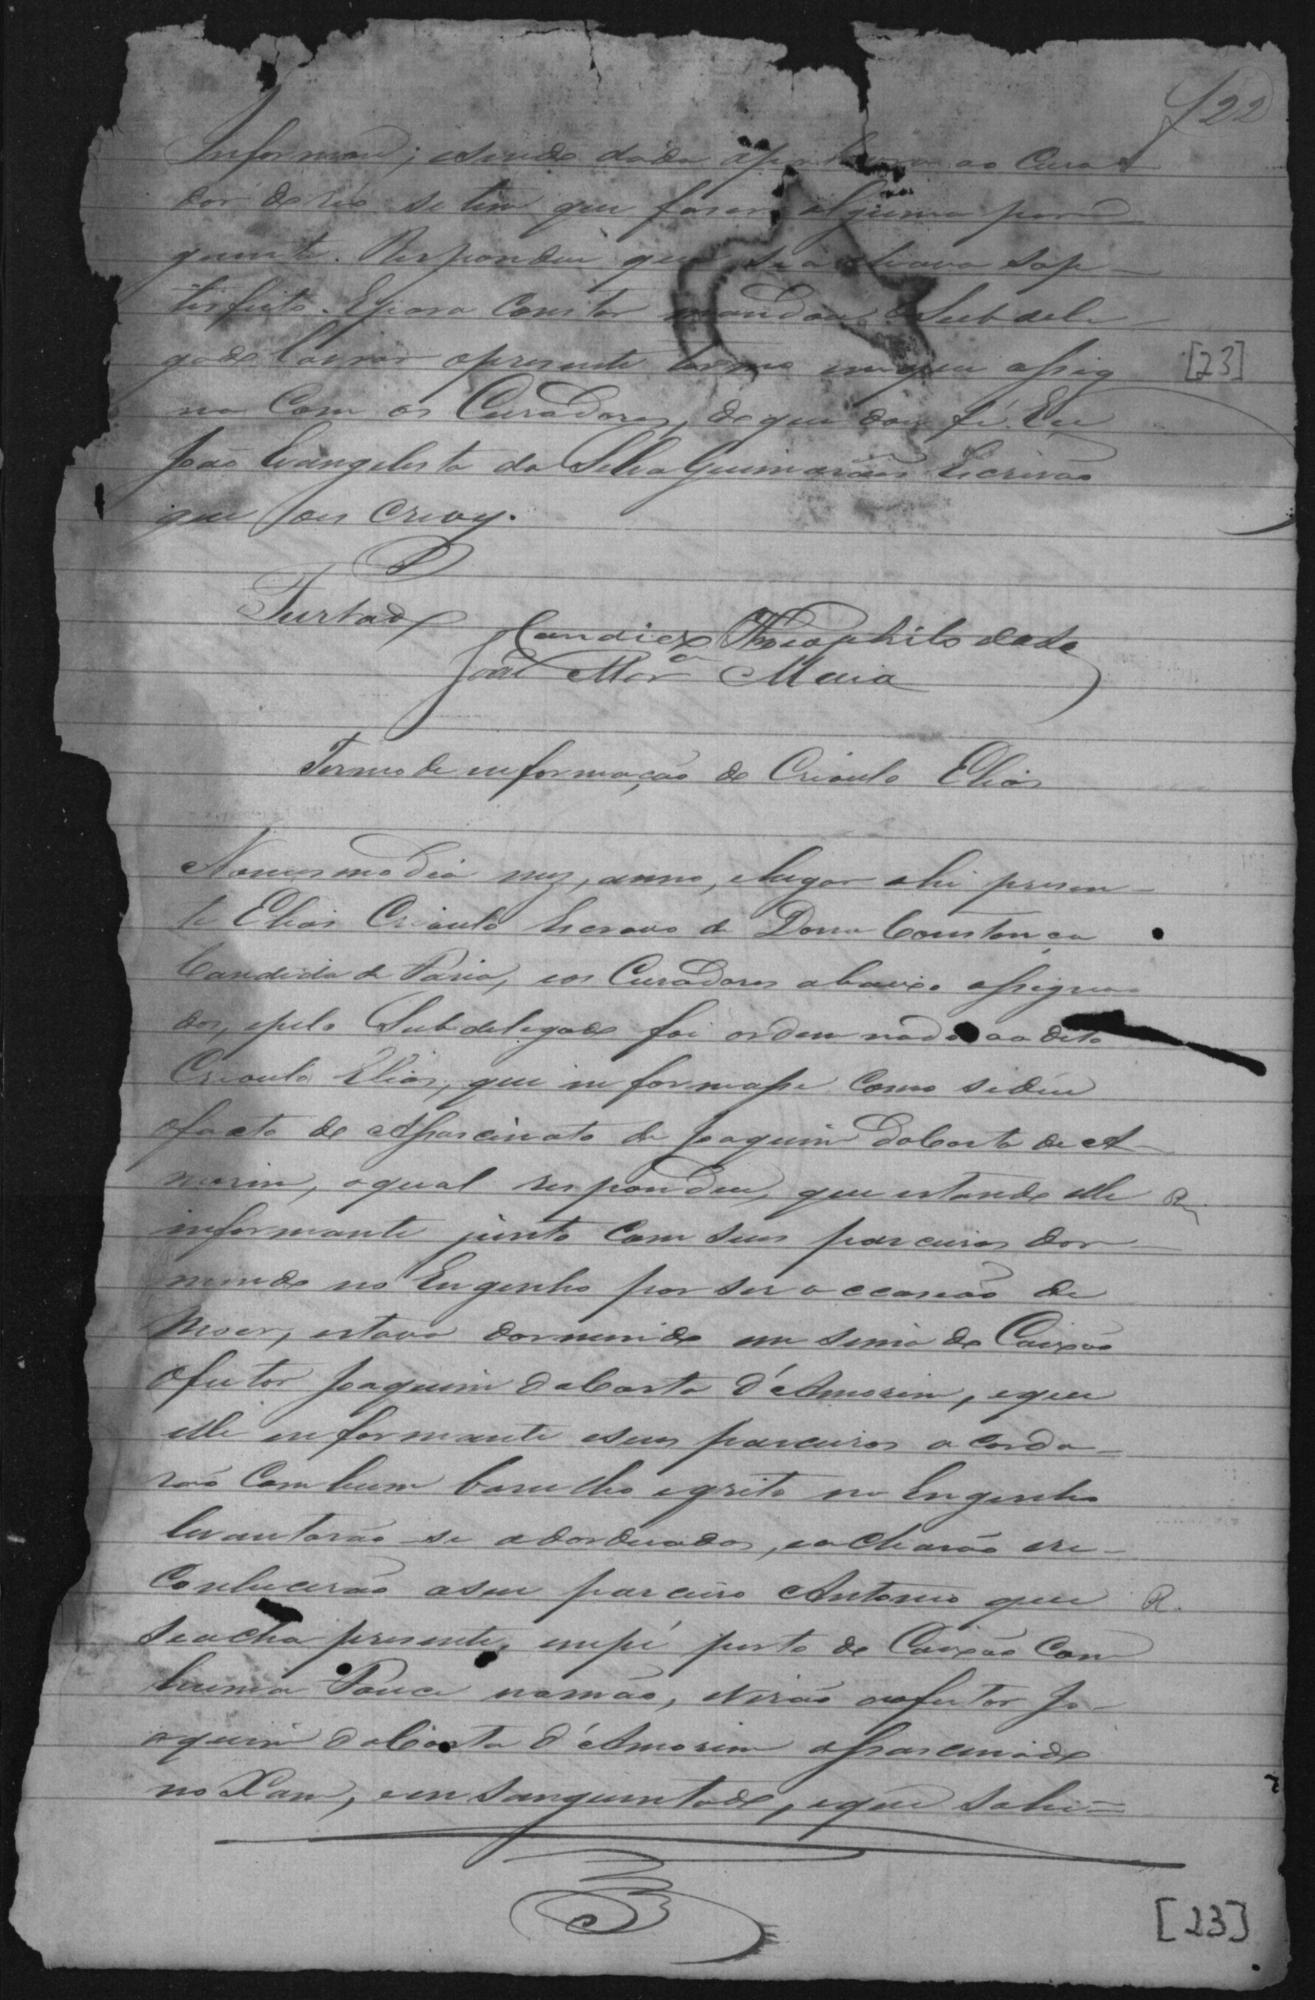 22
Informou; e sendo dada a palavra ao Cura
dor do réo se tem que fazer alguma per
gunta. Respondeu que se achava sap
tisfeito. E para constar mandou o Subdele
gado lavrar o presente termo em que assig
na com os Curadores, de que dou fé. Eu
João Evangelista da Silva Guimarães Escrivão
que o es crevy.
[23]
Furtado
Candido Theophilo
José Mor.ª Maia
Termo de informação do Crioulo Elias
No mesmo dia mez, anno, e lugar ahi presen-
te Elias Crioulo Escravo de Dona Constança
Candida de Paria, e os Curadores abaixo assigna
dos, e pelo Subdelegado foi ordenado ao dito
Crioulo Elias, que informasse como se deu
o facto de Assascinato de Joaquim da Costa de A-
morim, o qual respondeu, que estando elle
R.
informante junto com seus parceiros dor-
mindo no Engenho por ser occasião de
Moer, estava dormindo em sima do Caixão
o feitor Joaquim da Costa d'Amorim, e que
elle informante e seus parceiros acorda-
rão com hum barulho e grito no Engenho
levantarão-se e acharão e re-
conhecerão a seu parceiro Antonio que
R.
se acha presente, em pé perto do Caixão com
huma Fouce na mão, e virão ao feitor Jo-
aquim da Costa d'Amorim assascinado
no Xam, e ensanguentado, e que sahi-
[23]